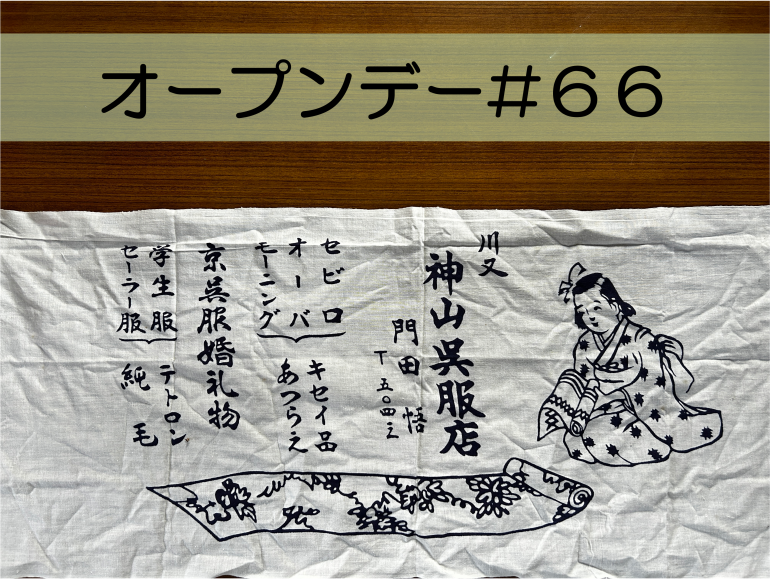 オープンデー#66
川又
神山呉服店
門田悟
T 五〇四之
セビロ
オーバ
モーニング
キセイ品
あつらえ
京呉服婚礼物
学生服
セーラー服
テトロン
純毛